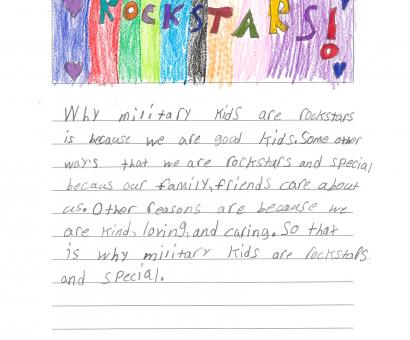 ROCKSTARS!
Why military kids are rockstars
is because we are good kids. Some other
way's that we are rockstars and special
becaus our family, friends care about
us. Other reasons are because we
are kind, loving, and caring. So that
is why military kids are rockstars
and special.